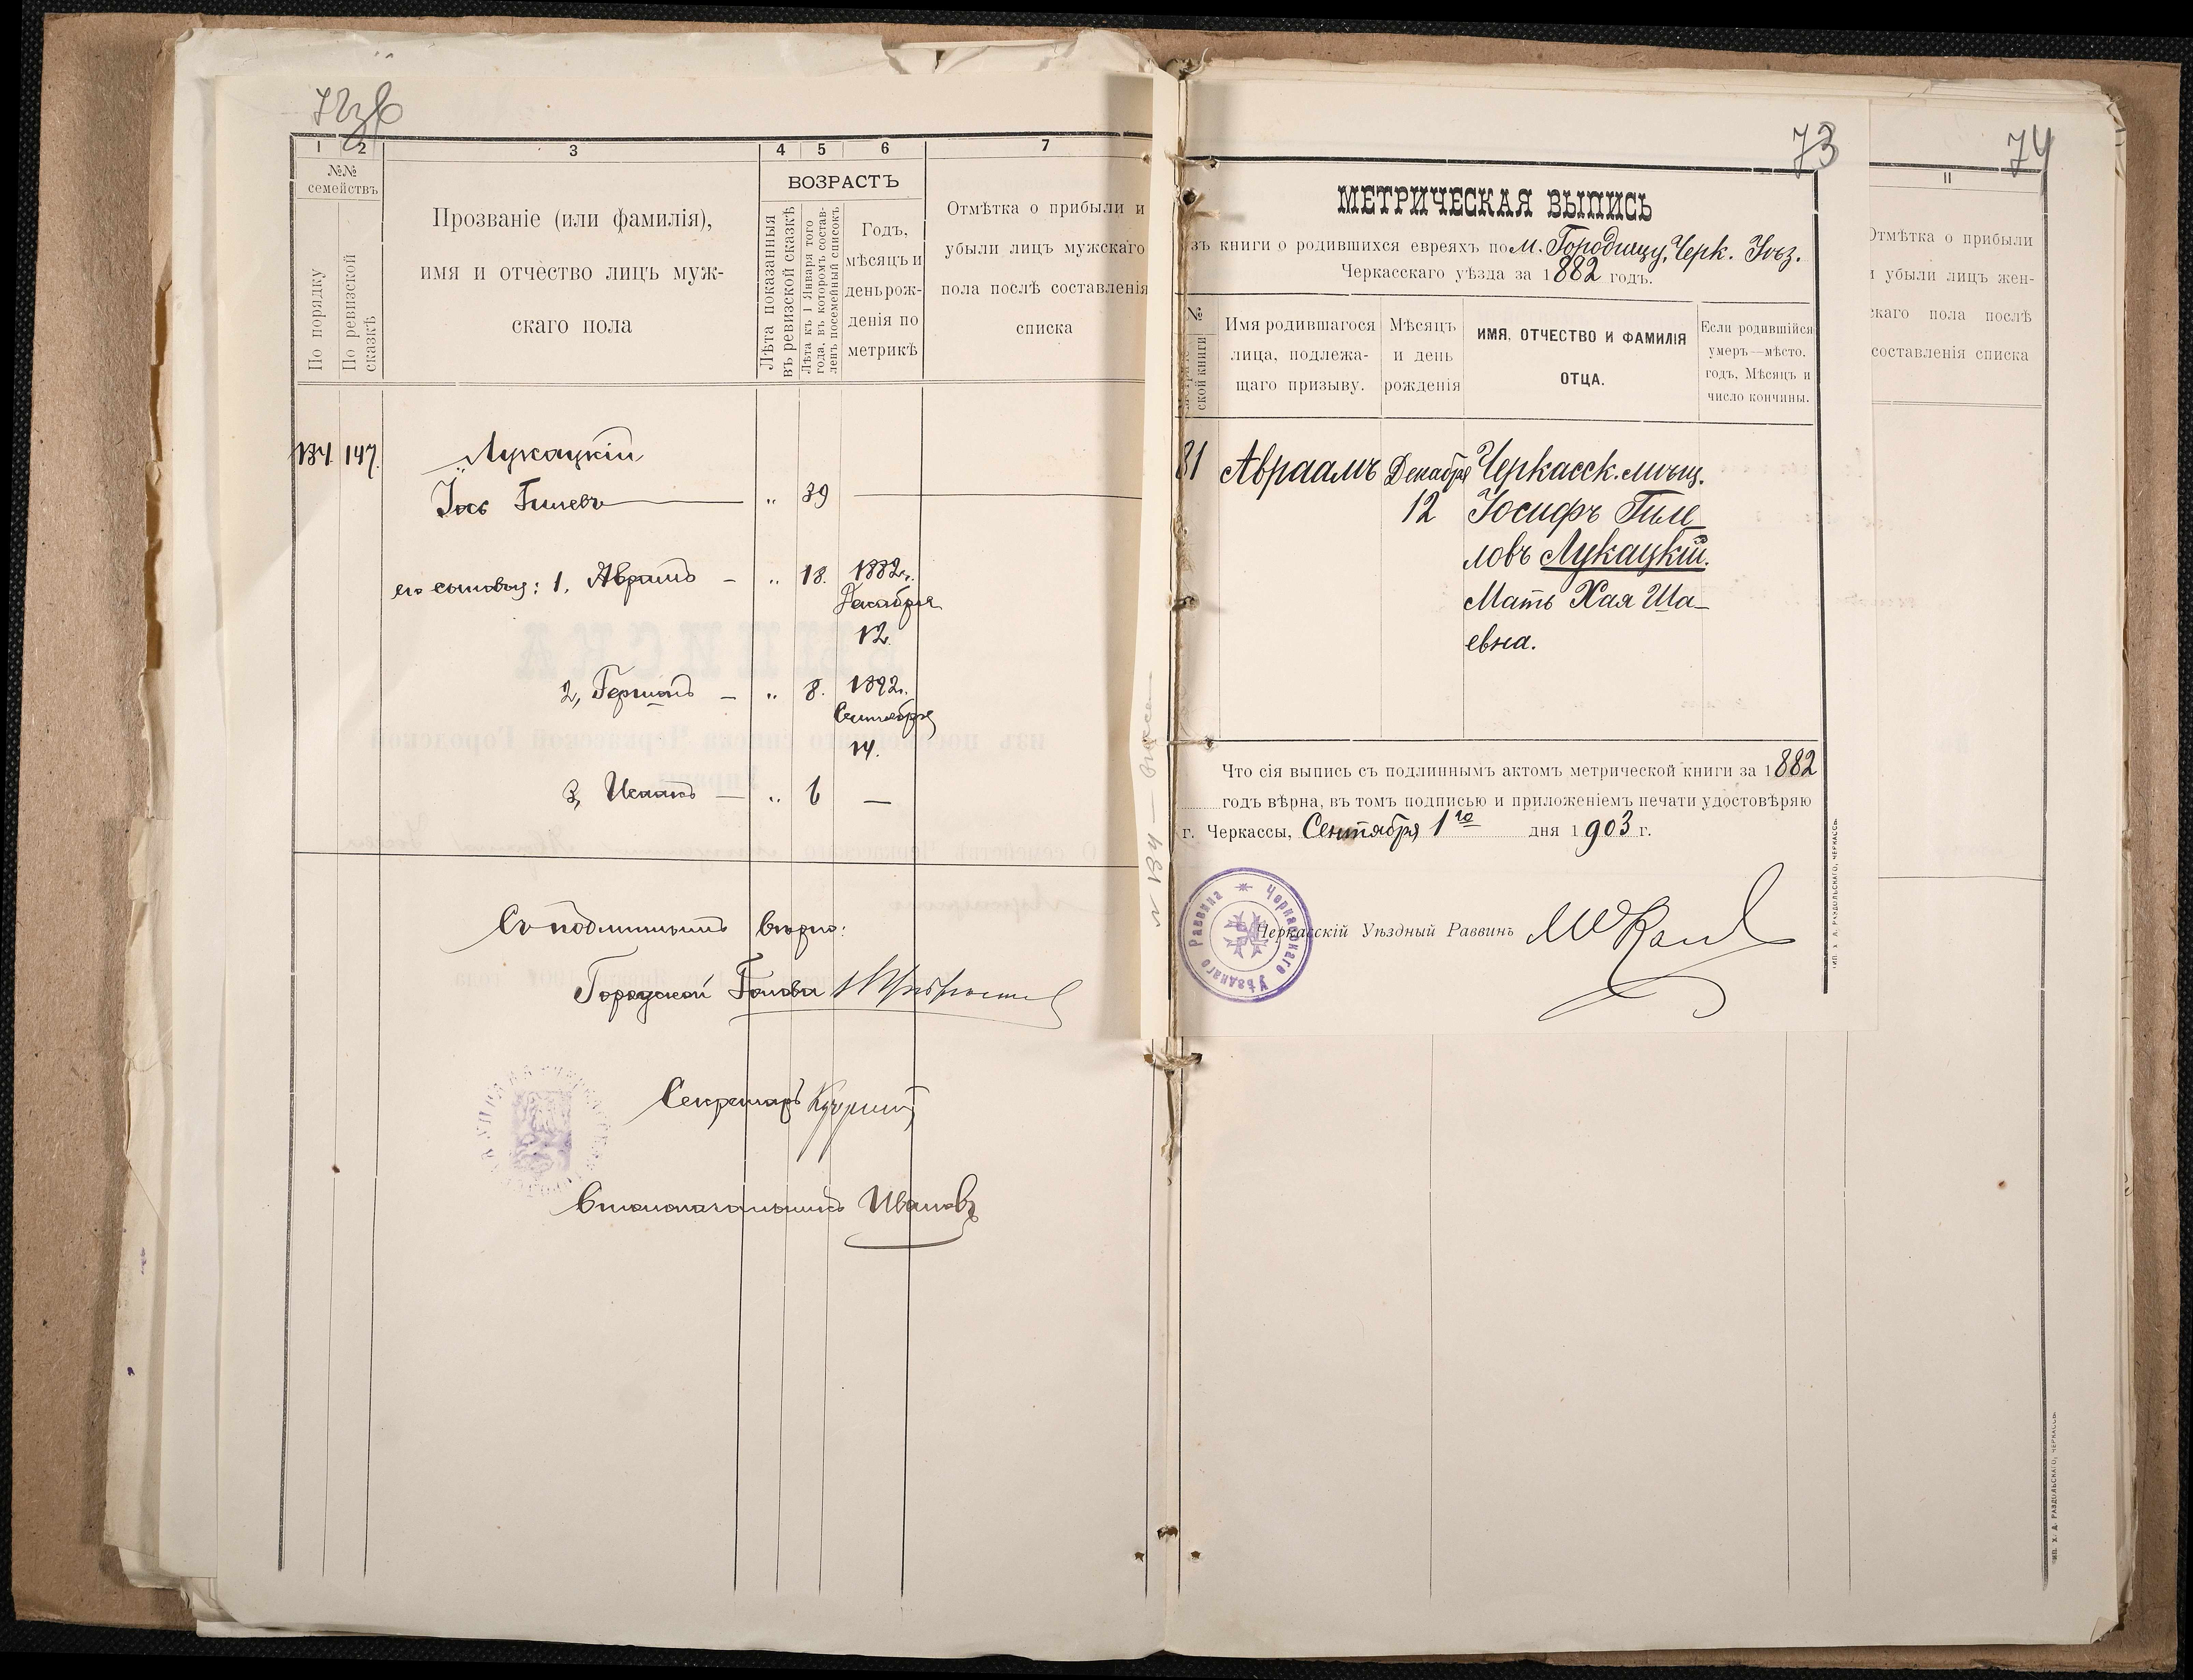 72 об
1 2 3 4 5 6 7
№№
семействъ
По порядку
По ревизской
сказкѣ
Прозваніе (или фамилія),
имя и отчество лицъ муж-
скаго пола
ВОЗРАСТЪ
Лѣта показанныя
въ ревизской сказкѣ
Лѣта къ 1 Января того
года, въ которомъ состав-
ленъ посемейный списокъ
Годъ,
мѣсяцъ и
день рож-
денія по
метрикѣ
Отмѣтка о прибыли и
убыли лицъ мужскаго
пола послѣ составленія
списка
134. 147. Лукацкій
Іось Гилевъ „ 39 —
его сыновья: 1, Аврамъ — „ 18. 1882 г.
Декабря
12.
2, Гершонъ — „ 8. 1892 г.
Сентября
14.
3, Исаакъ — „ 6 —
Съ подлиннымъ вѣрно:
Городской Голова
Секретарь
Столоначальникъ Ивановъ
№ 134 —
73
МЕТРИЧЕСКАЯ ВЫПИСЬ
зъ книги о родившихся евреяхъ по м. Городищу, Черк. Уѣз.
Черкасскаго уѣзда за 1882 годъ.
№
ской книги
Имя родившагося
лица, подлежа-
щаго призыву.
Мѣсяцъ
и день
рожденія
ИМЯ, ОТЧЕСТВО И ФАМИЛІЯ
ОТЦА.
Если родившійся
умеръ—мѣсто,
годъ, Мѣсяцъ и
число кончины.
81 Авраамъ Декабря Черкасск. мѣщ.
12 Іосифъ Гиле-
ловъ Лукацкій.
Мать Хая Ша-
евна.
Что сія выпись съ подлиннымъ актомъ метрической книги за 1882
годъ вѣрна, въ томъ подписью и приложеніемъ печати удостовѣряю
г. Черкассы, Сентября 1го дня 1903 г.
Черкасскаго Уѣзднаго Раввина
Черкасскій Уѣздный Раввинъ
ТИП. Х. Д. РАЗДОЛЬСКАГО, ЧЕРКАССЫ.
74
11
Отмѣтка о прибыли
и убыли лицъ жен-
скаго пола послѣ
составленія списка
ТИП. Х. Д. РАЗДОЛЬСКАГО, ЧЕРКАССЫ.